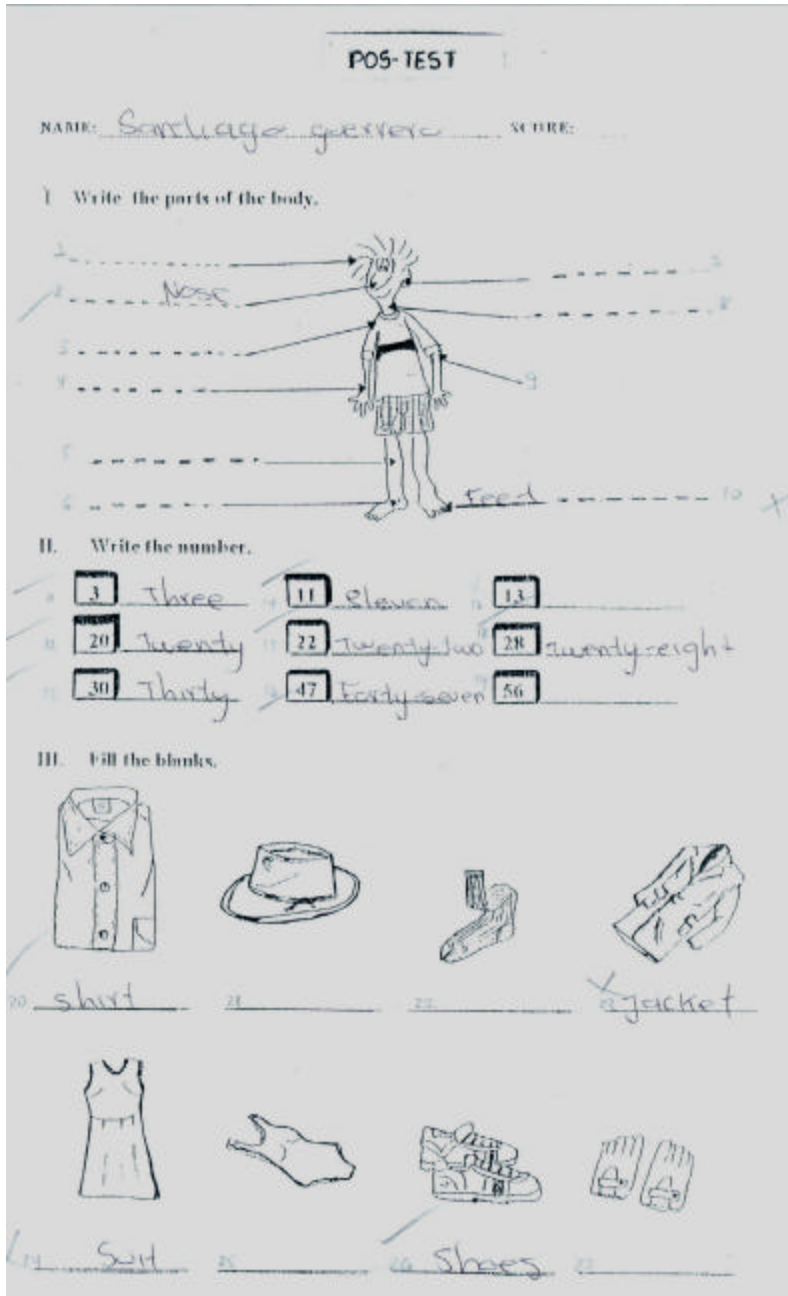 POS-TEST
NAME: Santiago guerrero SCORE:
I Write the parts of the body.
1
2 Nose
3
4
5
6
7
8
9
Feet 10
II. Write the number.
3 Three 11 eleven 13
20 Twenty 22 Twenty-two 28 Twenty-eight
30 Thirty 47 Forty-seven 56
III. Fill the blanks.
20 shirt 21 22 23 Jacket
24 Suit 25 26 Shoes 27